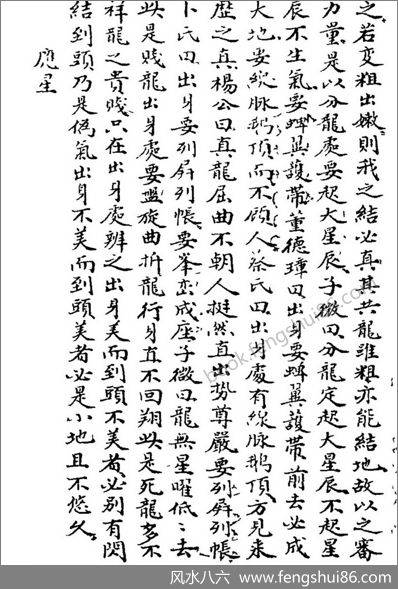 之若变粗出嫩則我之結必真其共龍雖粗亦能結地故以之審
力量是以分龍處要起大星辰子微曰分龍定起大星辰不起星
辰不生氣要蟬翼護帶董德璋曰出身要蟬翼護帶前去必成
大地要線脉鵝頂而不頋人蔡氏曰出身處有線脉鵝頂方見來
歷之真楊公曰真龍屈曲不朝人挺然直出势尊嚴要列屏列帳
卜氏曰出身要列屏列帳要峯峦成座子微曰龍無星曜低〻去
此是賤龍出身處要盤旋曲折龍行身直不回翔此是死龍多不
祥龍之貴賤只在出身處辨之出身美而到頭不美者必别有閃
結到頭乃是偽氣出身不美而到頭美者必是小地且不悠久
應星
book.fengshui86.com
风水八六 www.fengshui86.com